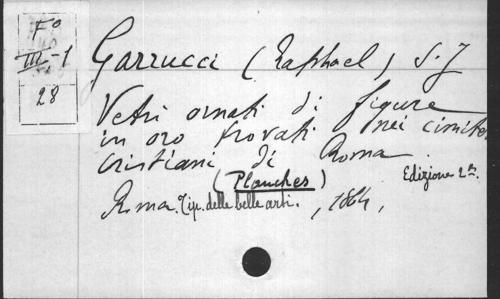 Fº
III-1
28
Garrucci (Raphael) S.J
Vetri ornati di figure
in oro trovati nei cimiteri
cristiani di Roma.
(Planches) Edizione 2ª.
Roma. Tip. delle belle arti., 1864,